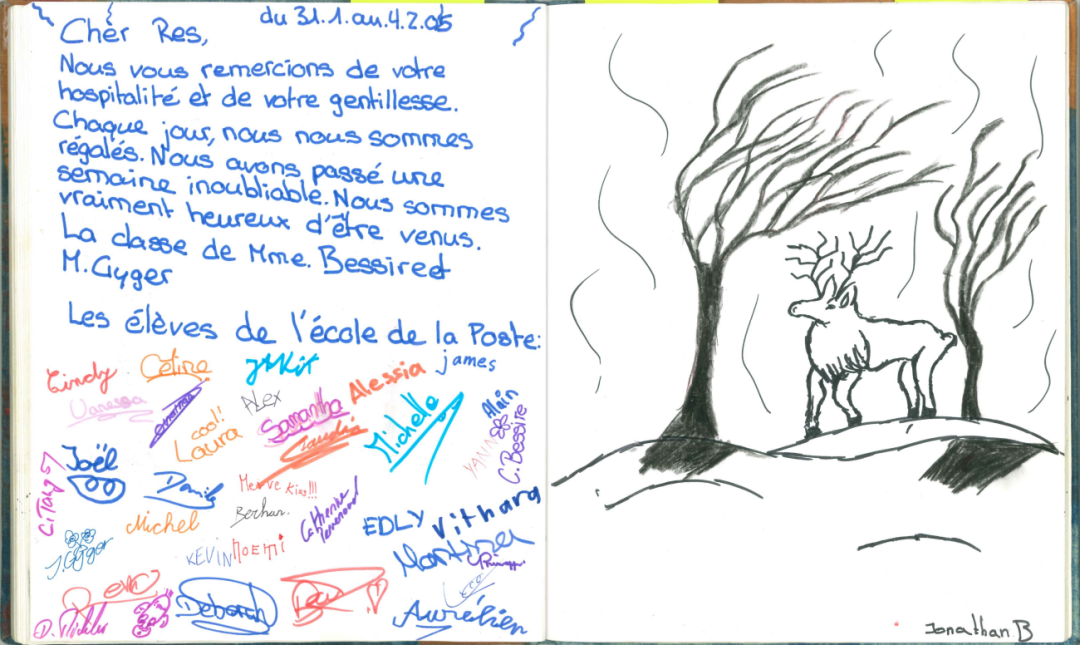 du 31.1.au.4.2.05
Cher Res,
Nous vous remercions de votre
hospitalité et de votre gentillesse.
Chaque jour, nous nous sommes
régalés. Nous avons passé une
semaine inoubliable. Nous sommes
vraiment heureux d'être venus.
La classe de Mme. Bessire et
M. Gyger
Les élèves de l'école de la Poste:
Cindy Céline james
Vanessa ALEX Samantha Alessia
cool! Laura Claudia Michelle Alain
YANN C. Bessire
Joël Danilo
Michel Berhan. Catherine
EDLY Vithara
J. Gyger KEVIN NOEMI Martina
Deborah Aurélien
Jonathan B